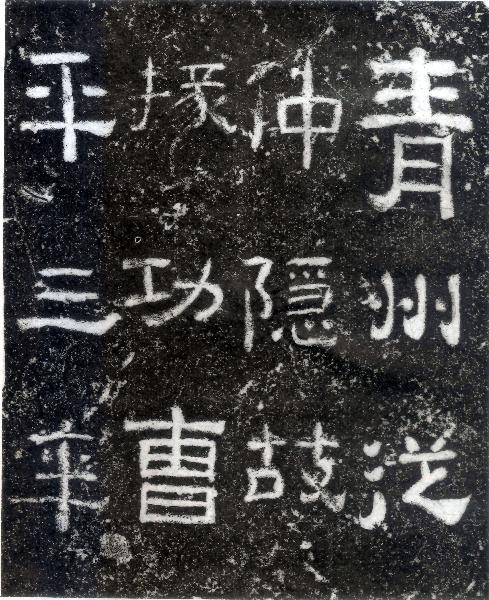 青州從
仲隱故
掾功曹
平三年